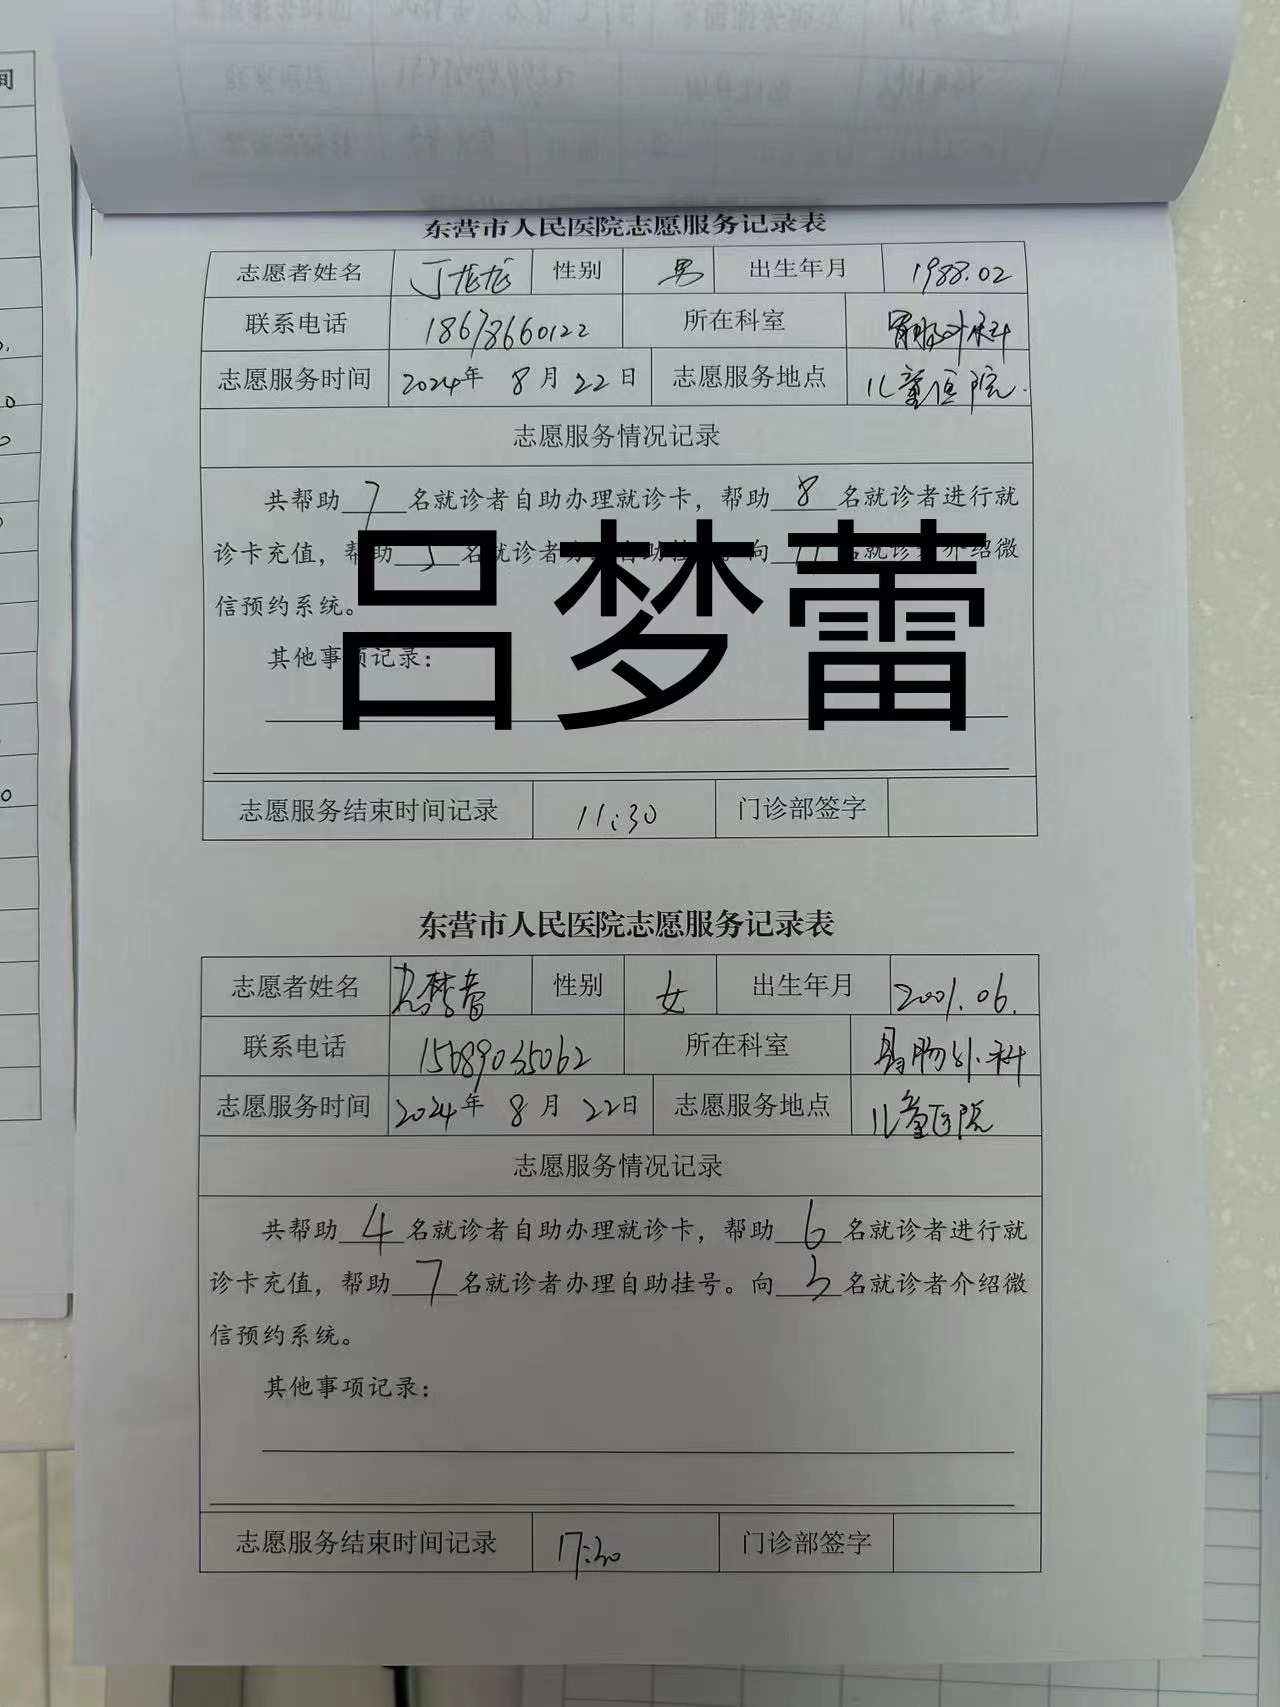 东营市人民医院志愿服务记录表
志愿者姓名 丁龙龙 性别 男 出生年月 1988.02
联系电话 18678660122 所在科室 胃肠外科
志愿服务时间 2024年 8月 22日 志愿服务地点 儿童医院.
志愿服务情况记录
共帮助 7 名就诊者自助办理就诊卡，帮助 8 名就诊者进行就
诊卡充值，帮助 5 名就诊者办理自助挂号。向 11 名就诊者介绍微
信预约系统。
吕梦蕾
其他事项记录：
志愿服务结束时间记录 11:30 门诊部签字
东营市人民医院志愿服务记录表
志愿者姓名 吕梦蕾 性别 女 出生年月 2001.06.
联系电话 15689035062 所在科室 胃肠外科
志愿服务时间 2024年 8月 22日 志愿服务地点 儿童医院
志愿服务情况记录
共帮助 4 名就诊者自助办理就诊卡，帮助 6 名就诊者进行就
诊卡充值，帮助 7 名就诊者办理自助挂号。向 5 名就诊者介绍微
信预约系统。
其他事项记录：
志愿服务结束时间记录 17:30 门诊部签字
间